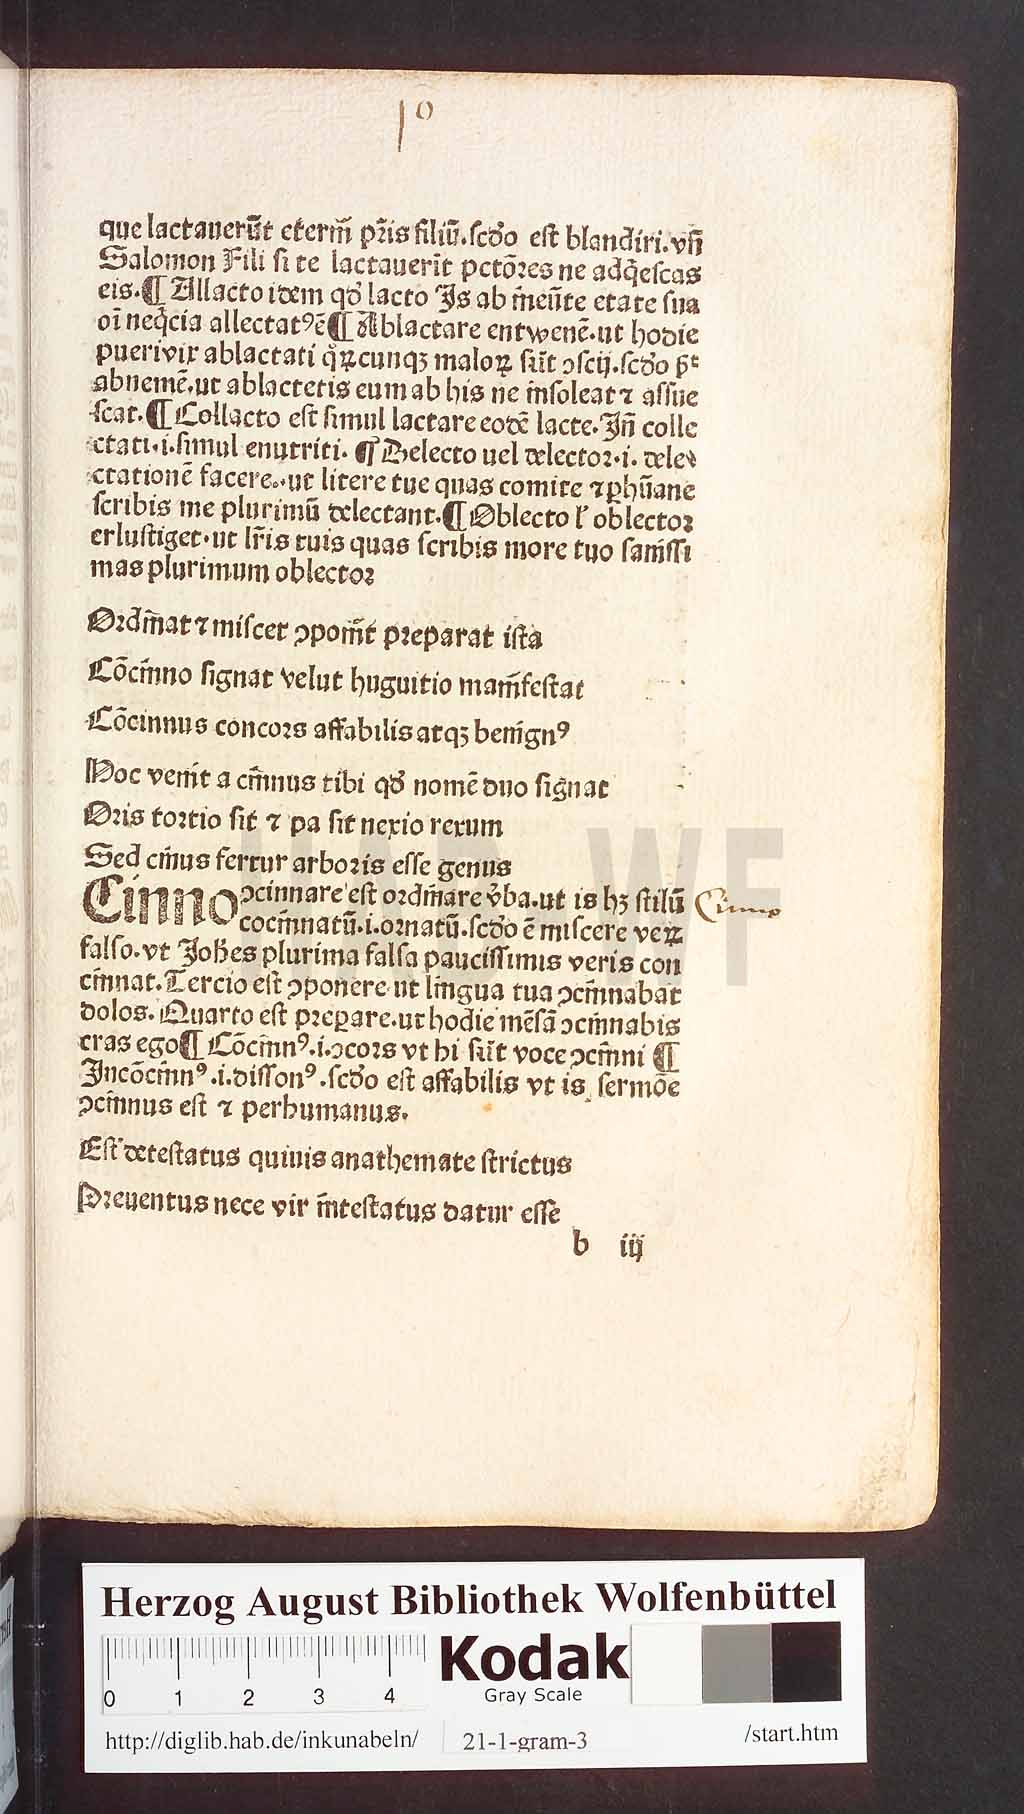 10
que lactauerūt eterni pr̄is filiū. scd̓o est blandiri. vn̄
Salomon Fili si te lactauerīt pctōꝛes ne adq̄escas
eis. ¶ Allacto idem qd̓ lacto Is ab ineūte etate sua
oī neq̄cia allectatꝰ ē ¶ Ablactare entwenē. ut hodie
pueri vix ablactati qꝛcunqꝫ maloꝝ sūt ↄscij. scd̓o
abnemē. ut ablactetis eum ab his ne insoleat ⁊ assue
scat. ¶ Collacto est simul lactare eodē lacte. Jn̄ colle
ctati. i. simul enutriti. ¶ Delecto uel delectoꝛ. i. dele
ctationē facere. ut litere tue quas comite ⁊ ꝑhūane
scribis me plurimū delectant. ¶ Oblecto ł oblectoꝛ
erlustiget. ut lr̄is tuis quas scribis more tuo
mas plurimum oblectoꝛ
Oꝛdinat ⁊ miscet ↄponit pꝛeparat ista
Cōcinno signat velut huguitio manifestat
Cōcinnus concoꝛs affabilis atqꝫ benignꝰ
Hoc venit a cinnus tibi qd̓ nomē duo signat
Oꝛis toꝛtio sit ⁊ pa sit nexio rerum
Sed cinus fertur arboꝛis esse genus
Cinno ↄcinnare est oꝛdinare v̄ba. ut is hꝫ stilū
Cinno
cocinnatū. i. oꝛnatū. scd̓o ē miscere veꝝ
falso. vt Joh̄es plurima falsa paucissimis veris con
cinnat. Tercio est ↄponere ut lingua tua ↄcinnabat
dolos. Quarto est pꝛepare. ut hodie mēsā ↄcinnabis
cras ego ¶ Cōcinnꝰ. i. ↄcoꝛs vt hi sūt voce ↄcinni ¶
Jncōcinnꝰ. i. dissonꝰ. scd̓o est affabilis vt is sermōe
ↄcinnus est ⁊ perhumanus.
Est detestatus quiuis anathemate strictus
Pꝛeuentus nece vir intestatus datur esse
b iij
HAB WF
Herzog August Bibliothek Wolfenbüttel
0 1 2 3 4
Kodak
Gray Scale
http://diglib.hab.de/inkunabeln/ 21-1-gram-3 /start.htm